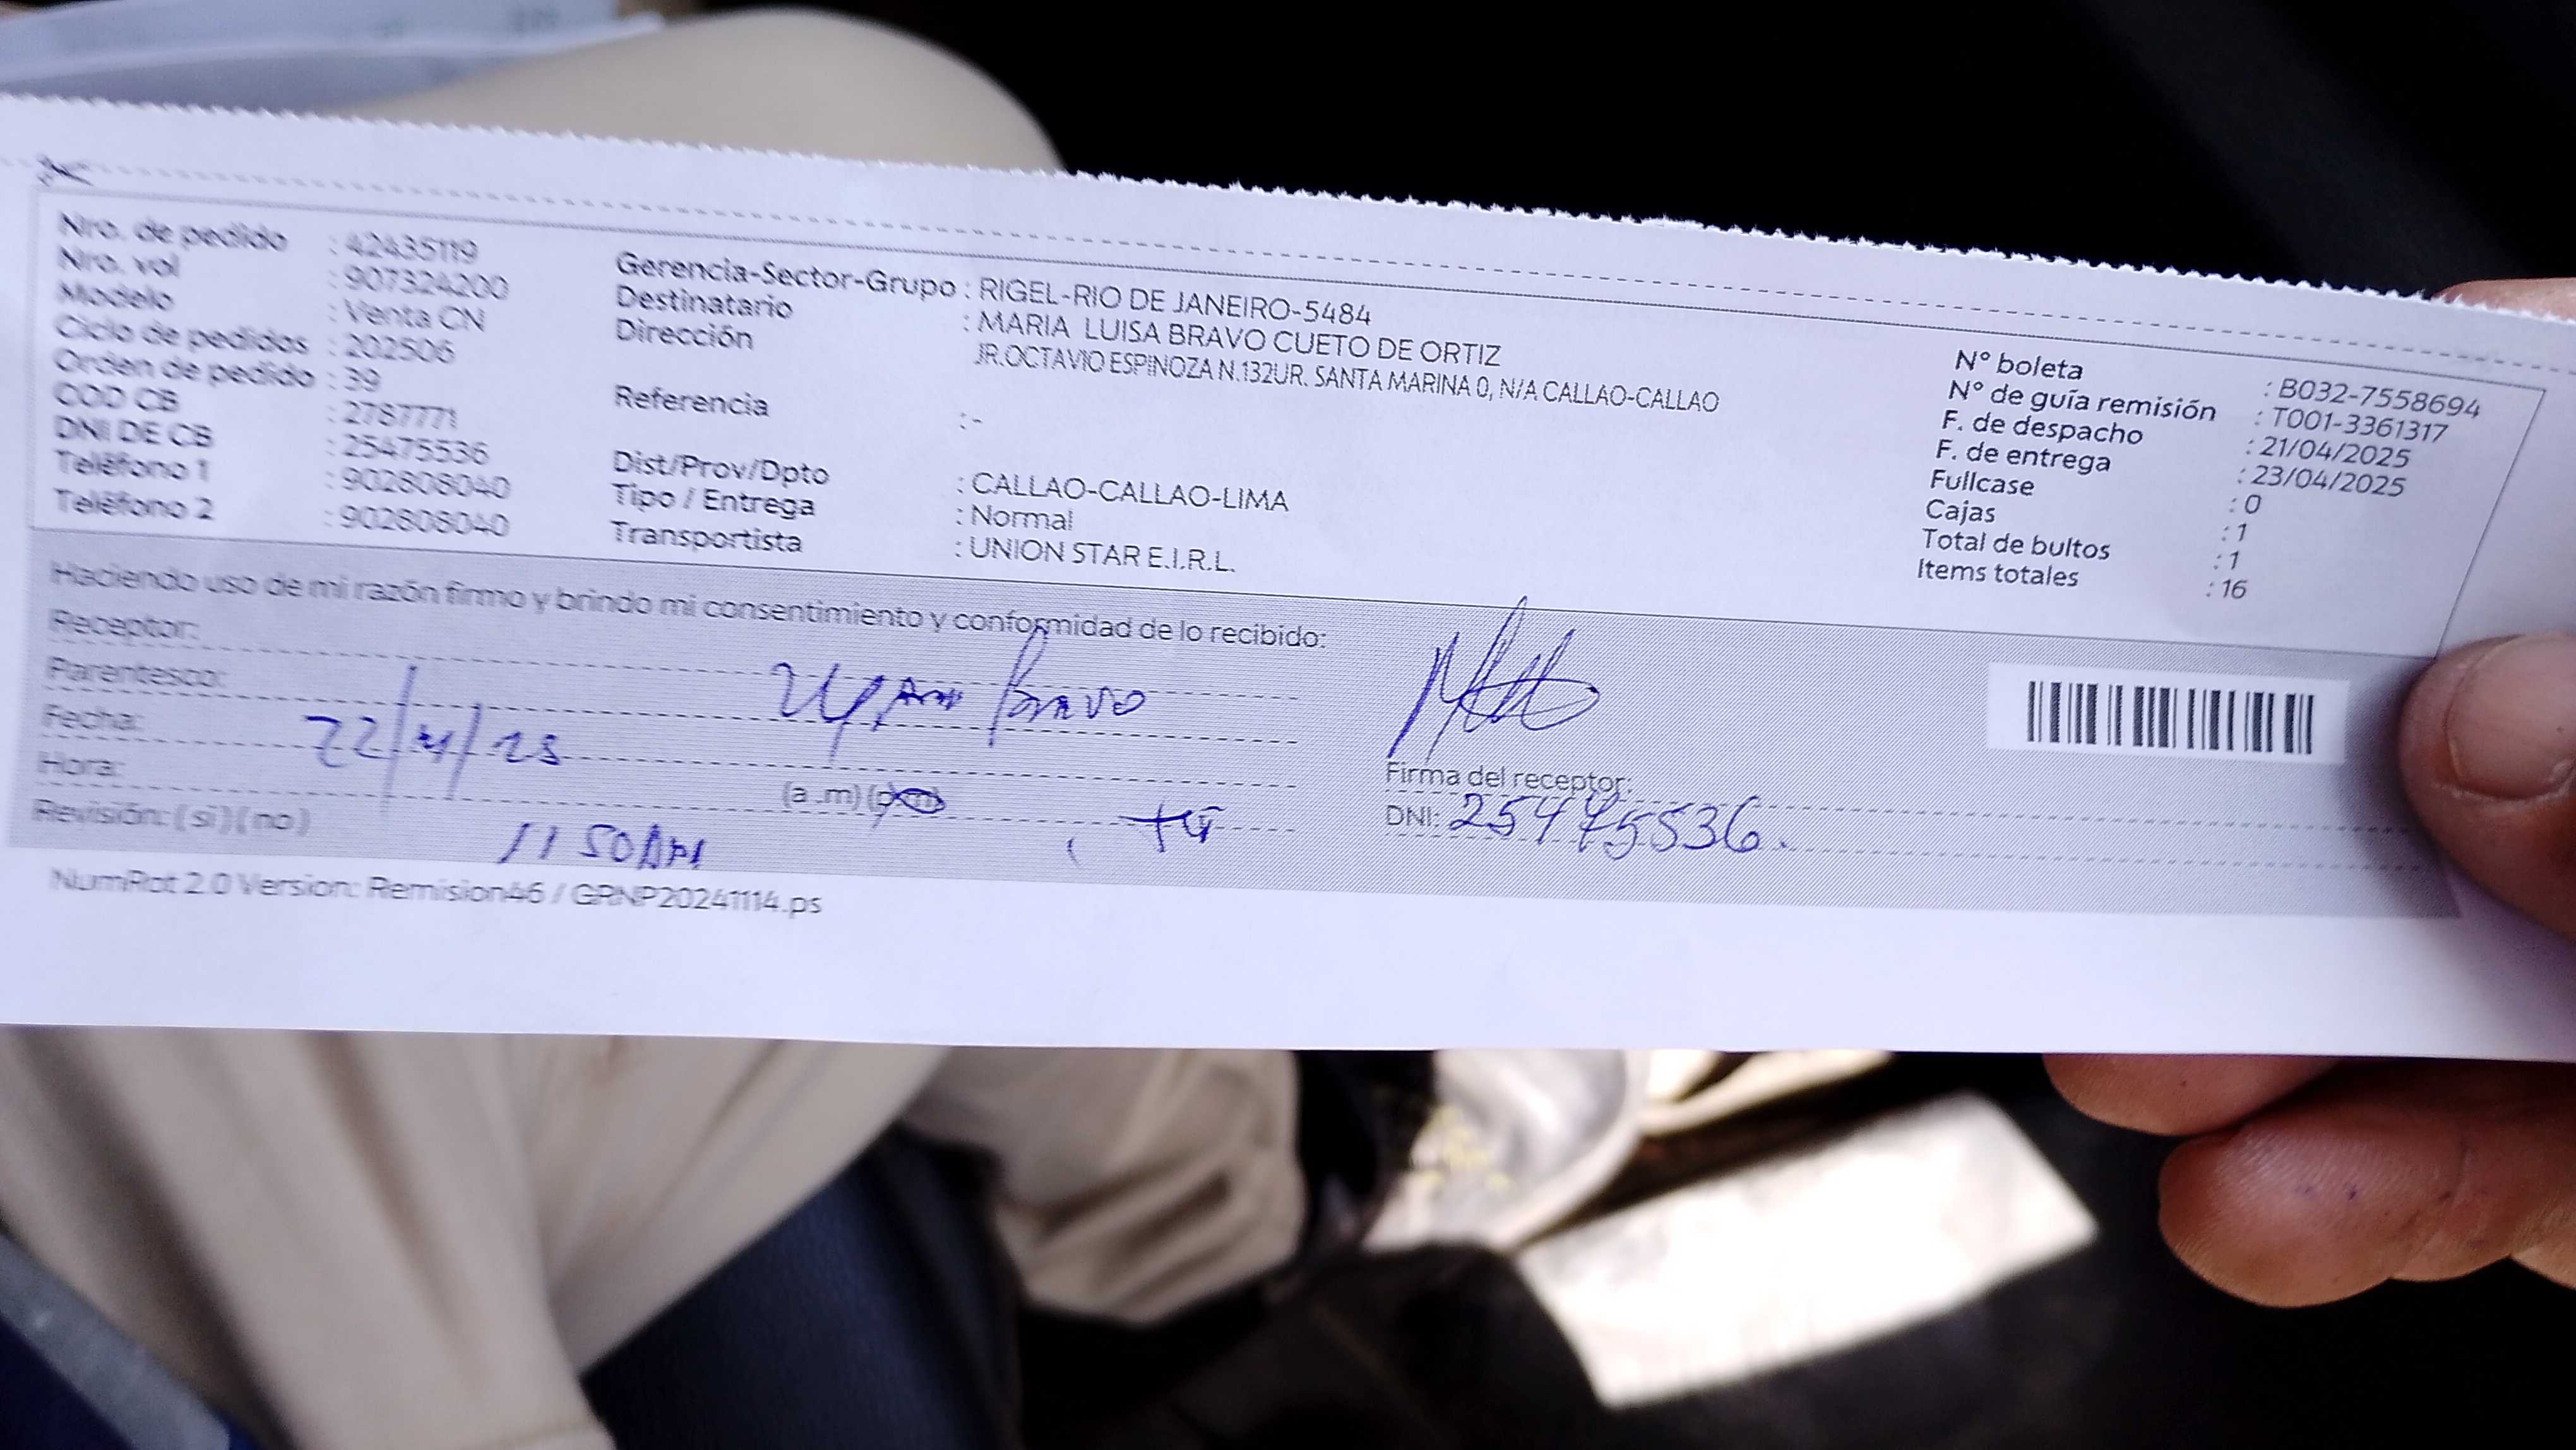 Nro. de pedido : 42435119
Nro. vol : 907324200
Modelo : Venta CN
Ciclo de pedidos : 202506
Orden de pedido : 39
COD CB : 2787771
DNI DE CB : 25475536
Teléfono 1 : 902808040
Teléfono 2 : 902808040
Gerencia-Sector-Grupo : RIGEL-RIO DE JANEIRO-5484
Destinatario : MARIA LUISA BRAVO CUETO DE ORTIZ
Dirección JR.OCTAVIO ESPINOZA N.132UR. SANTA MARINA 0, N/A CALLAO-CALLAO
Referencia : -
Dist/Prov/Dpto : CALLAO-CALLAO-LIMA
Tipo / Entrega : Normal
Transportista : UNION STAR E.I.R.L.
N° boleta : B032-7558694
N° de guía remisión : T001-3361317
F. de despacho : 21/04/2025
F. de entrega : 23/04/2025
Fullcase : 0
Cajas : 1
Total de bultos : 1
Items totales : 16
Haciendo uso de mi razón firmo y brindo mi consentimiento y conformidad de lo recibido:
Receptor:
Parentesco: Bravo
Fecha: 22/4/25
Hora: (a.m) (p.m)
Revisión: ( si ) ( no ) 11 50 AM
Firma del receptor:
DNI: 25475536.
NumRot 2.0 Version: Remision46 / GRNP20241114.ps